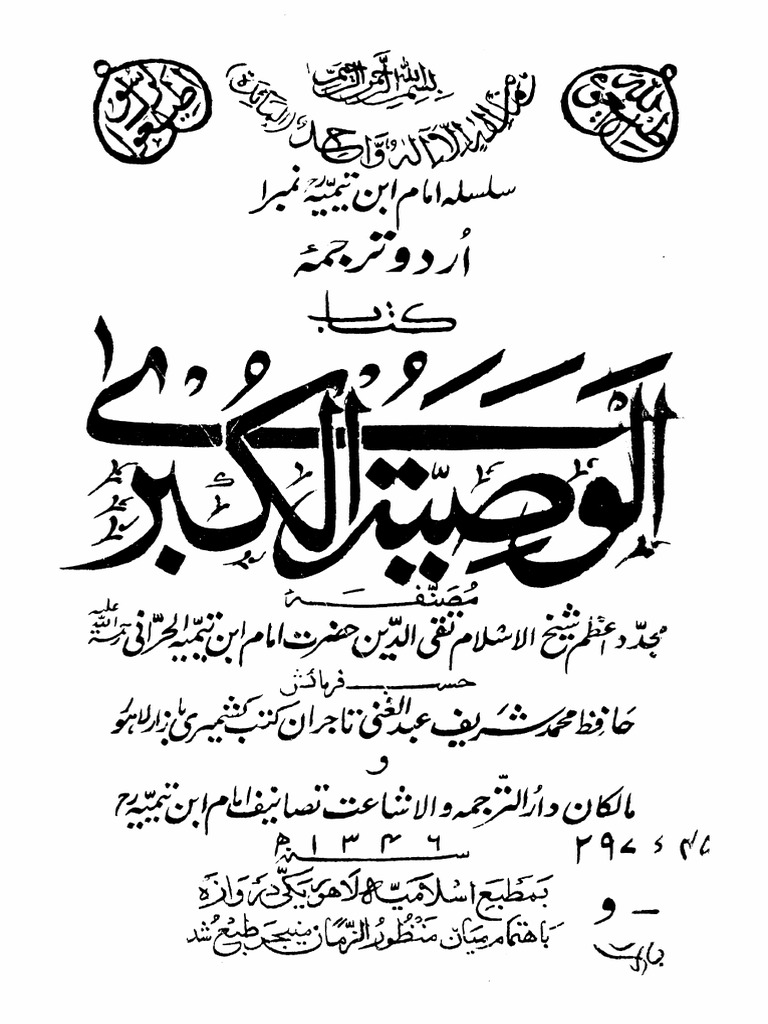 بِسْمِ اللهِ الرَّحْمٰنِ الرَّحِيْمِ
اطیعوا اللہ
اطیعوا الرسول
اِلٰهٍ اِلَّا اِلٰهٌ وَّاحِدٌ (المائدۃ)
سلسلہ امام ابن تیمیہؒ نمبر ۱
اُردو ترجمۂ
کتاب
اَلْوَصِیَّۃُ الْکُبْرٰی
مُصنَّفہ
مجدّد اعظم شیخ الاسلام تقی الدّین حضرت امام ابن تیمیہ الحرّانی رحمۃ اللہ علیہ
حسب فرمائش
حافظ محمد شریف عبد الغنی تاجران کتب کشمیری بازار لاہور
و
مالکان دارُ التّرجمہ و الاشاعت تصانیف امام ابن تیمیّہؒ
سنہ ۱۳۴۶ھ
۲۹۷ء۴
و –
بمطبع اسلامیہ لاہور یکّی دروازہ
باہتمام میاں منظور الزّمان منیجر طبع شد